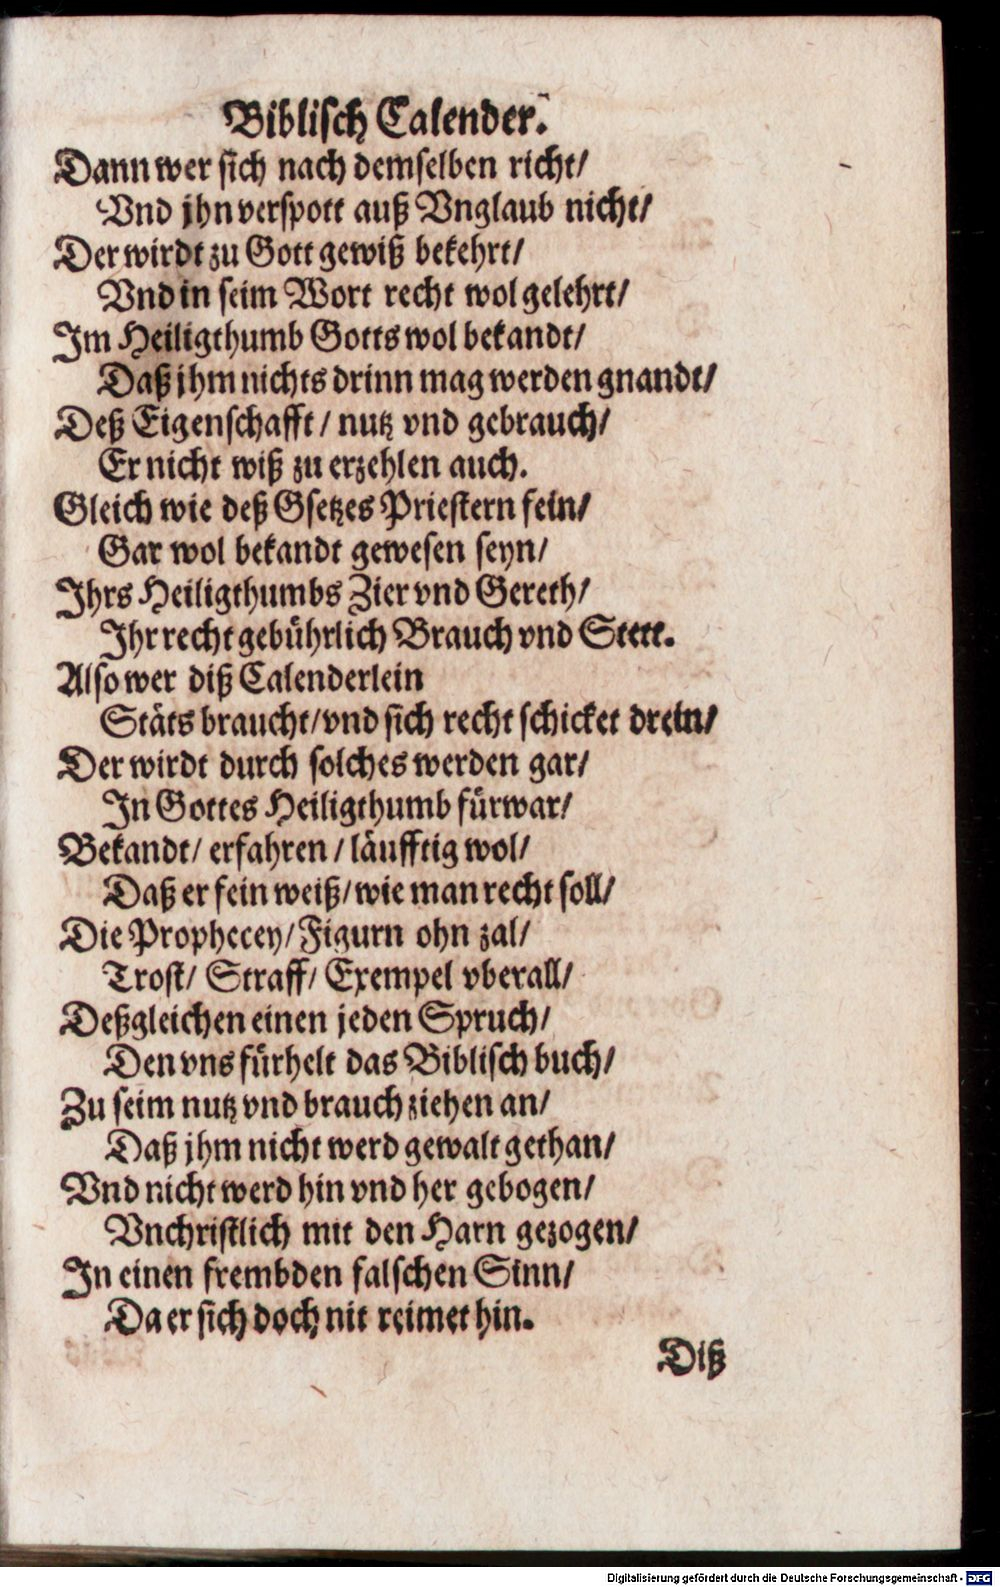 Biblisch Calender.
Dann wer sich nach demselben richt/
Vnd jhn verspott auß Vnglaub nicht/
Der wirdt zu Gott gewiß bekehrt/
Vnd in seim Wort recht wol gelehrt/
Im Heiligthumb Gotts wol bekandt/
Daß jhm nichts drinn mag werden gnandt/
Deß Eigenschafft / nutz vnd gebrauch/
Er nicht wiß zu erzehlen auch.
Gleich wie deß Gsetzes Priestern fein/
Gar wol bekandt gewesen seyn/
Ihrs Heiligthumbs Zier vnd Gereth/
Ihr recht gebührlich Brauch vnd Stett.
Also wer diß Calenderlein
Stäts braucht/vnd sich recht schicket drein/
Der wirdt durch solches werden gar/
In Gottes Heiligthumb fürwar/
Bekandt/ erfahren / läufftig wol/
Daß er fein weiß/wie man recht soll/
Die Prophecey/Figurn ohn zal/
Trost/ Straff/ Exempel vberall/
Deßgleichen einen jeden Spruch/
Den vns fürhelt das Biblisch buch/
Zu seim nutz vnd brauch ziehen an/
Daß jhm nicht werd gewalt gethan/
Vnd nicht werd hin vnd her gebogen/
Vnchristlich mit den Harn gezogen/
In einen frembden falschen Sinn/
Da er sich doch nit reimet hin.
Diß
Digitalisierung gefördert durch die Deutsche Forschungsgemeinschaft - DFG